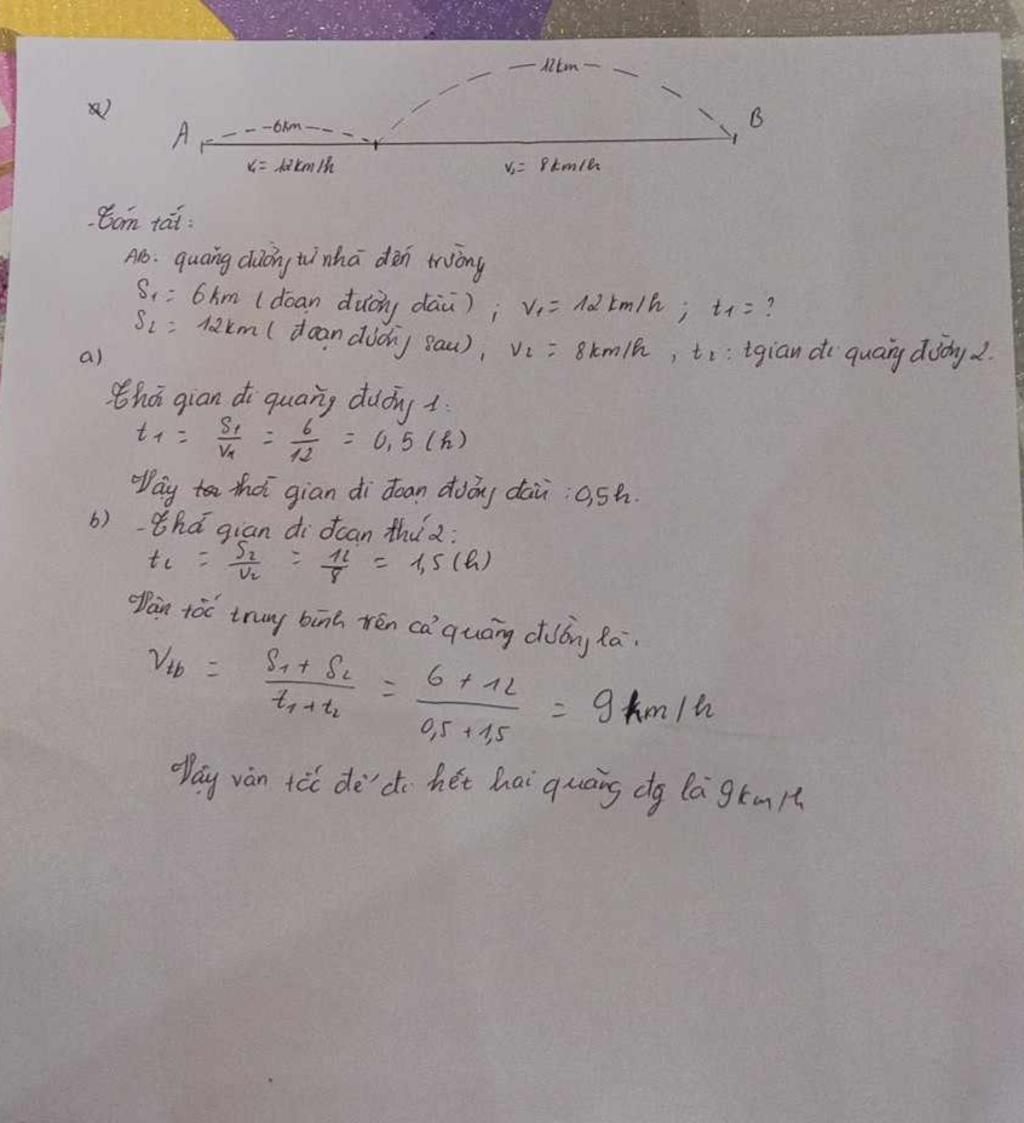 a)
12km
A 6km B
v₁ = 12km/h v₂ = 8km/h
- Tóm tắt:
AB: quãng đường từ nhà đến trường
S₁ = 6km (đoạn đường đầu) ; v₁ = 12km/h ; t₁ = ?
S₂ = 12km (đoạn đường sau), v₂ = 8km/h , t₂ : tgian đi quãng đường 2.
a)
Thời gian đi quãng đường 1:
t₁ = S₁/v₁ = 6/12 = 0,5 (h)
Vậy thời gian đi đoạn đường đầu : 0,5h.
b) - Thời gian đi đoạn thứ 2:
t₂ = S₂/v₂ = 12/8 = 1,5 (h)
Vận tốc trung bình trên cả quãng đường là.
Vtb = (S₁ + S₂)/(t₁ + t₂) = (6 + 12)/(0,5 + 1,5) = 9km/h
Vậy vận tốc để đi hết hai quãng đg là 9km/h